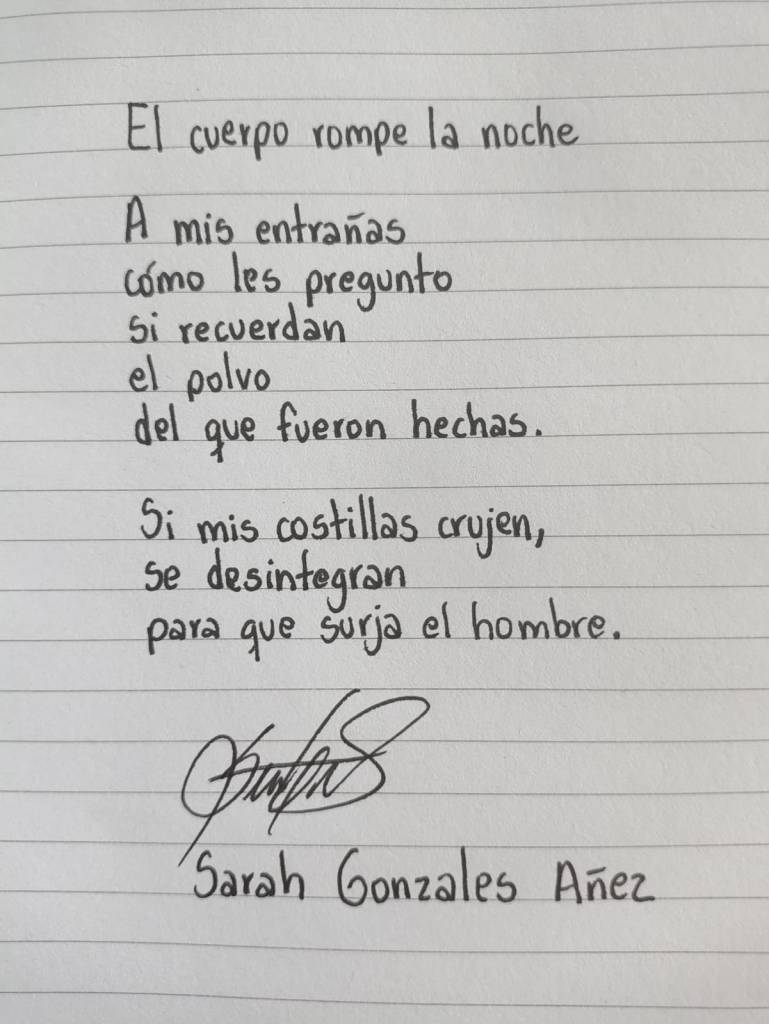 El cuerpo rompe la noche
A mis entrañas
cómo les pregunto
si recuerdan
el polvo
del que fueron hechas.
Si mis costillas crujen,
se desintegran
para que surja el hombre.
Sarah Gonzales Añez